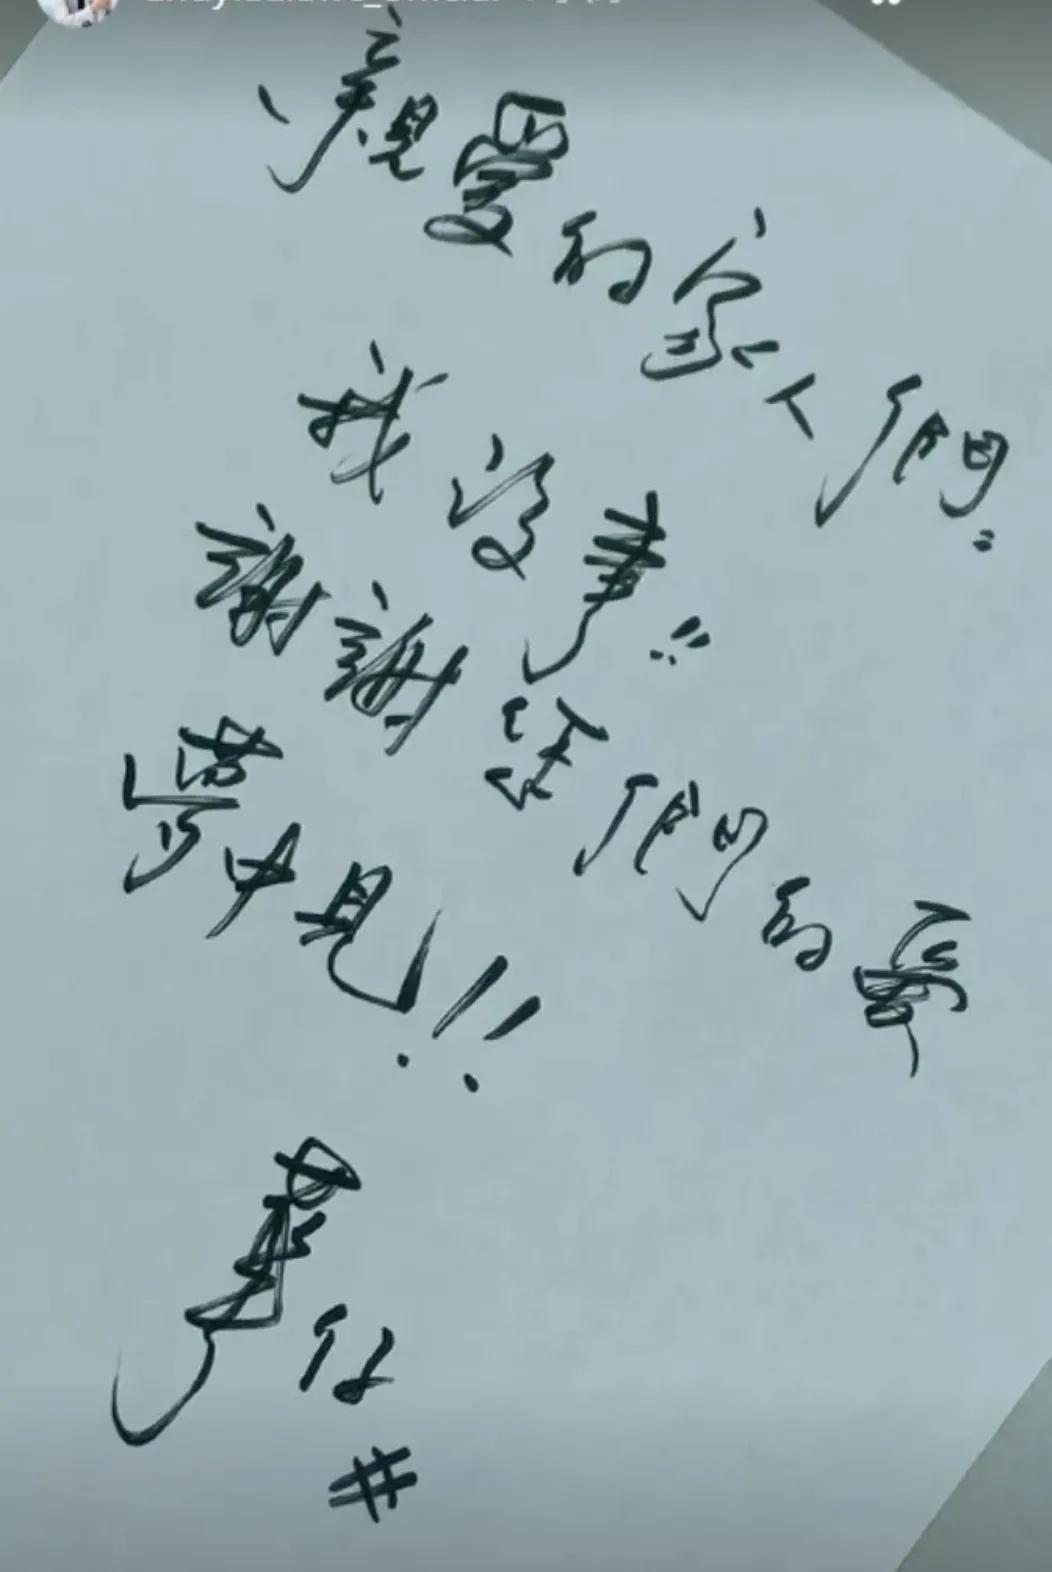 親愛的家人們：
我沒事！！
謝謝您們的愛
夢中見！！
華仔
#